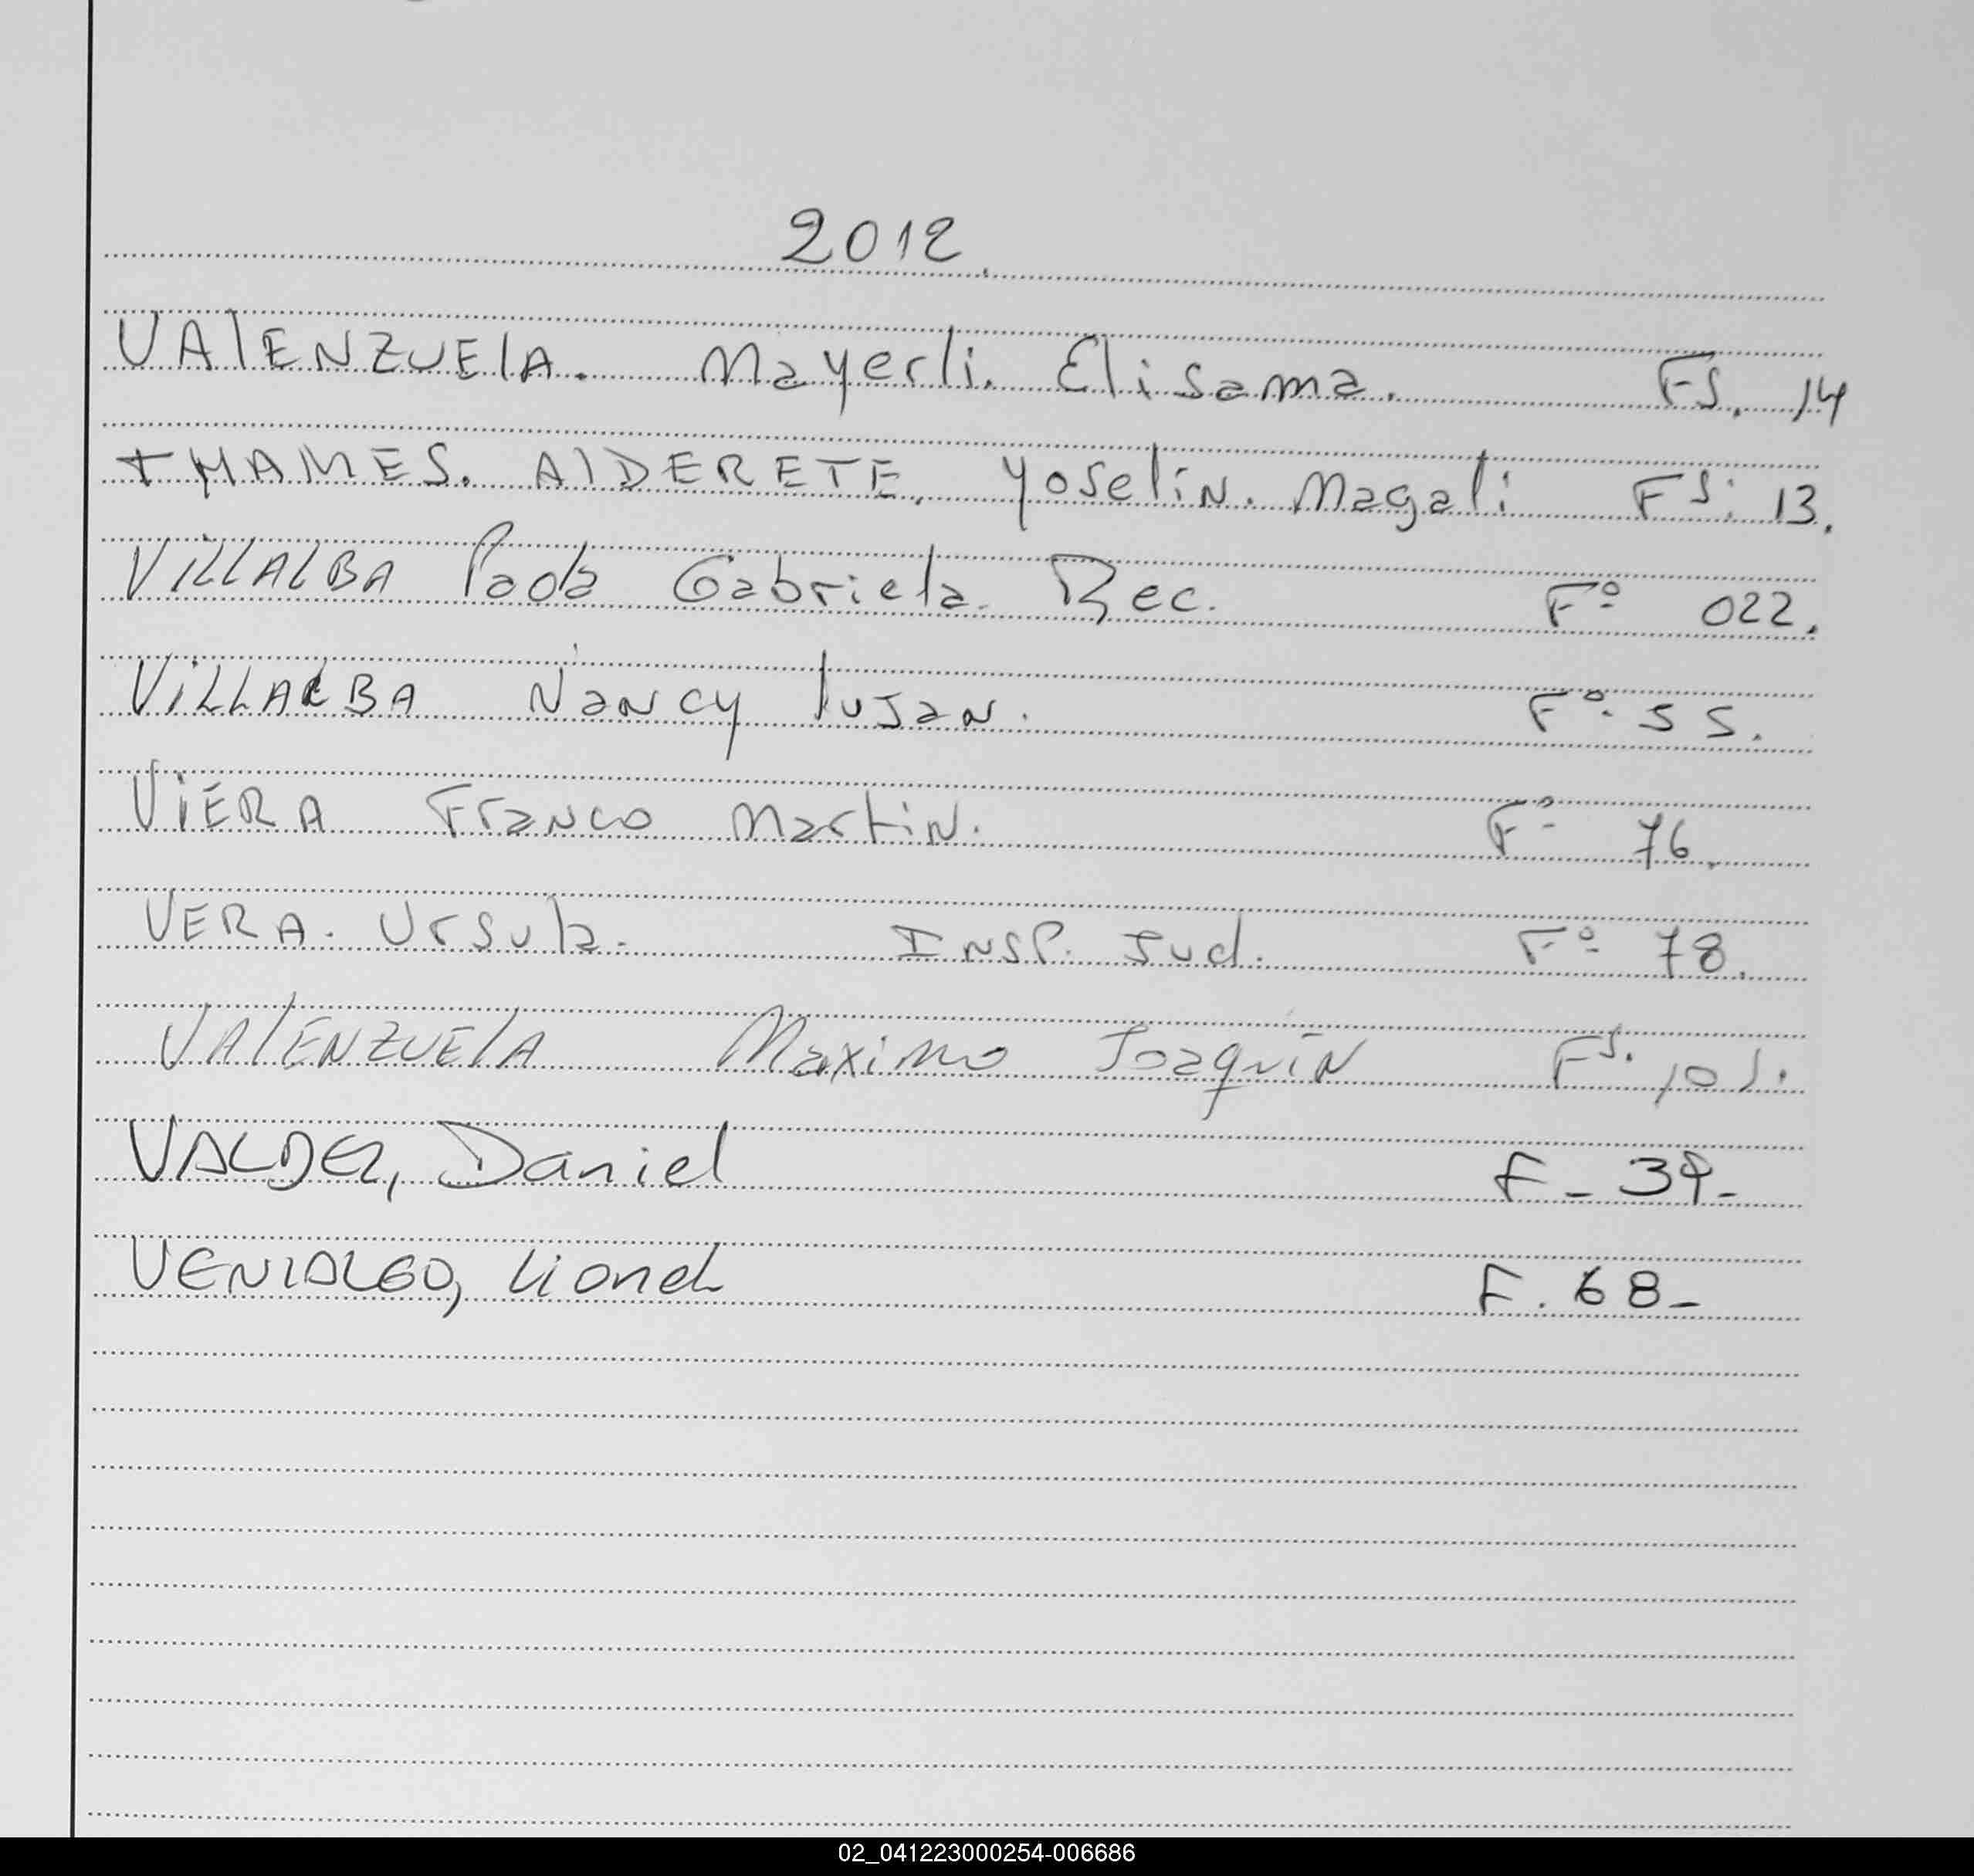 2012.
VALENZUELA. Mayerli. Elisama. FS. 14
THAMES. ALDERETE. Yoselin. Magali FS: 13.
VILLALBA Paola Gabriela. Rec. Fº 022.
VILLALBA Nancy Lujan. Fº. 55.
VIERA Franco Martin. Fº 76.
VERA. Ursula. INSP. Jud. Fº 78.
VALENZUELA Maximo Joaquin FS. 101.
VALDEZ, Daniel F_ 39_
VENIALGO, Lionel F. 68_
02_041223000254-006686